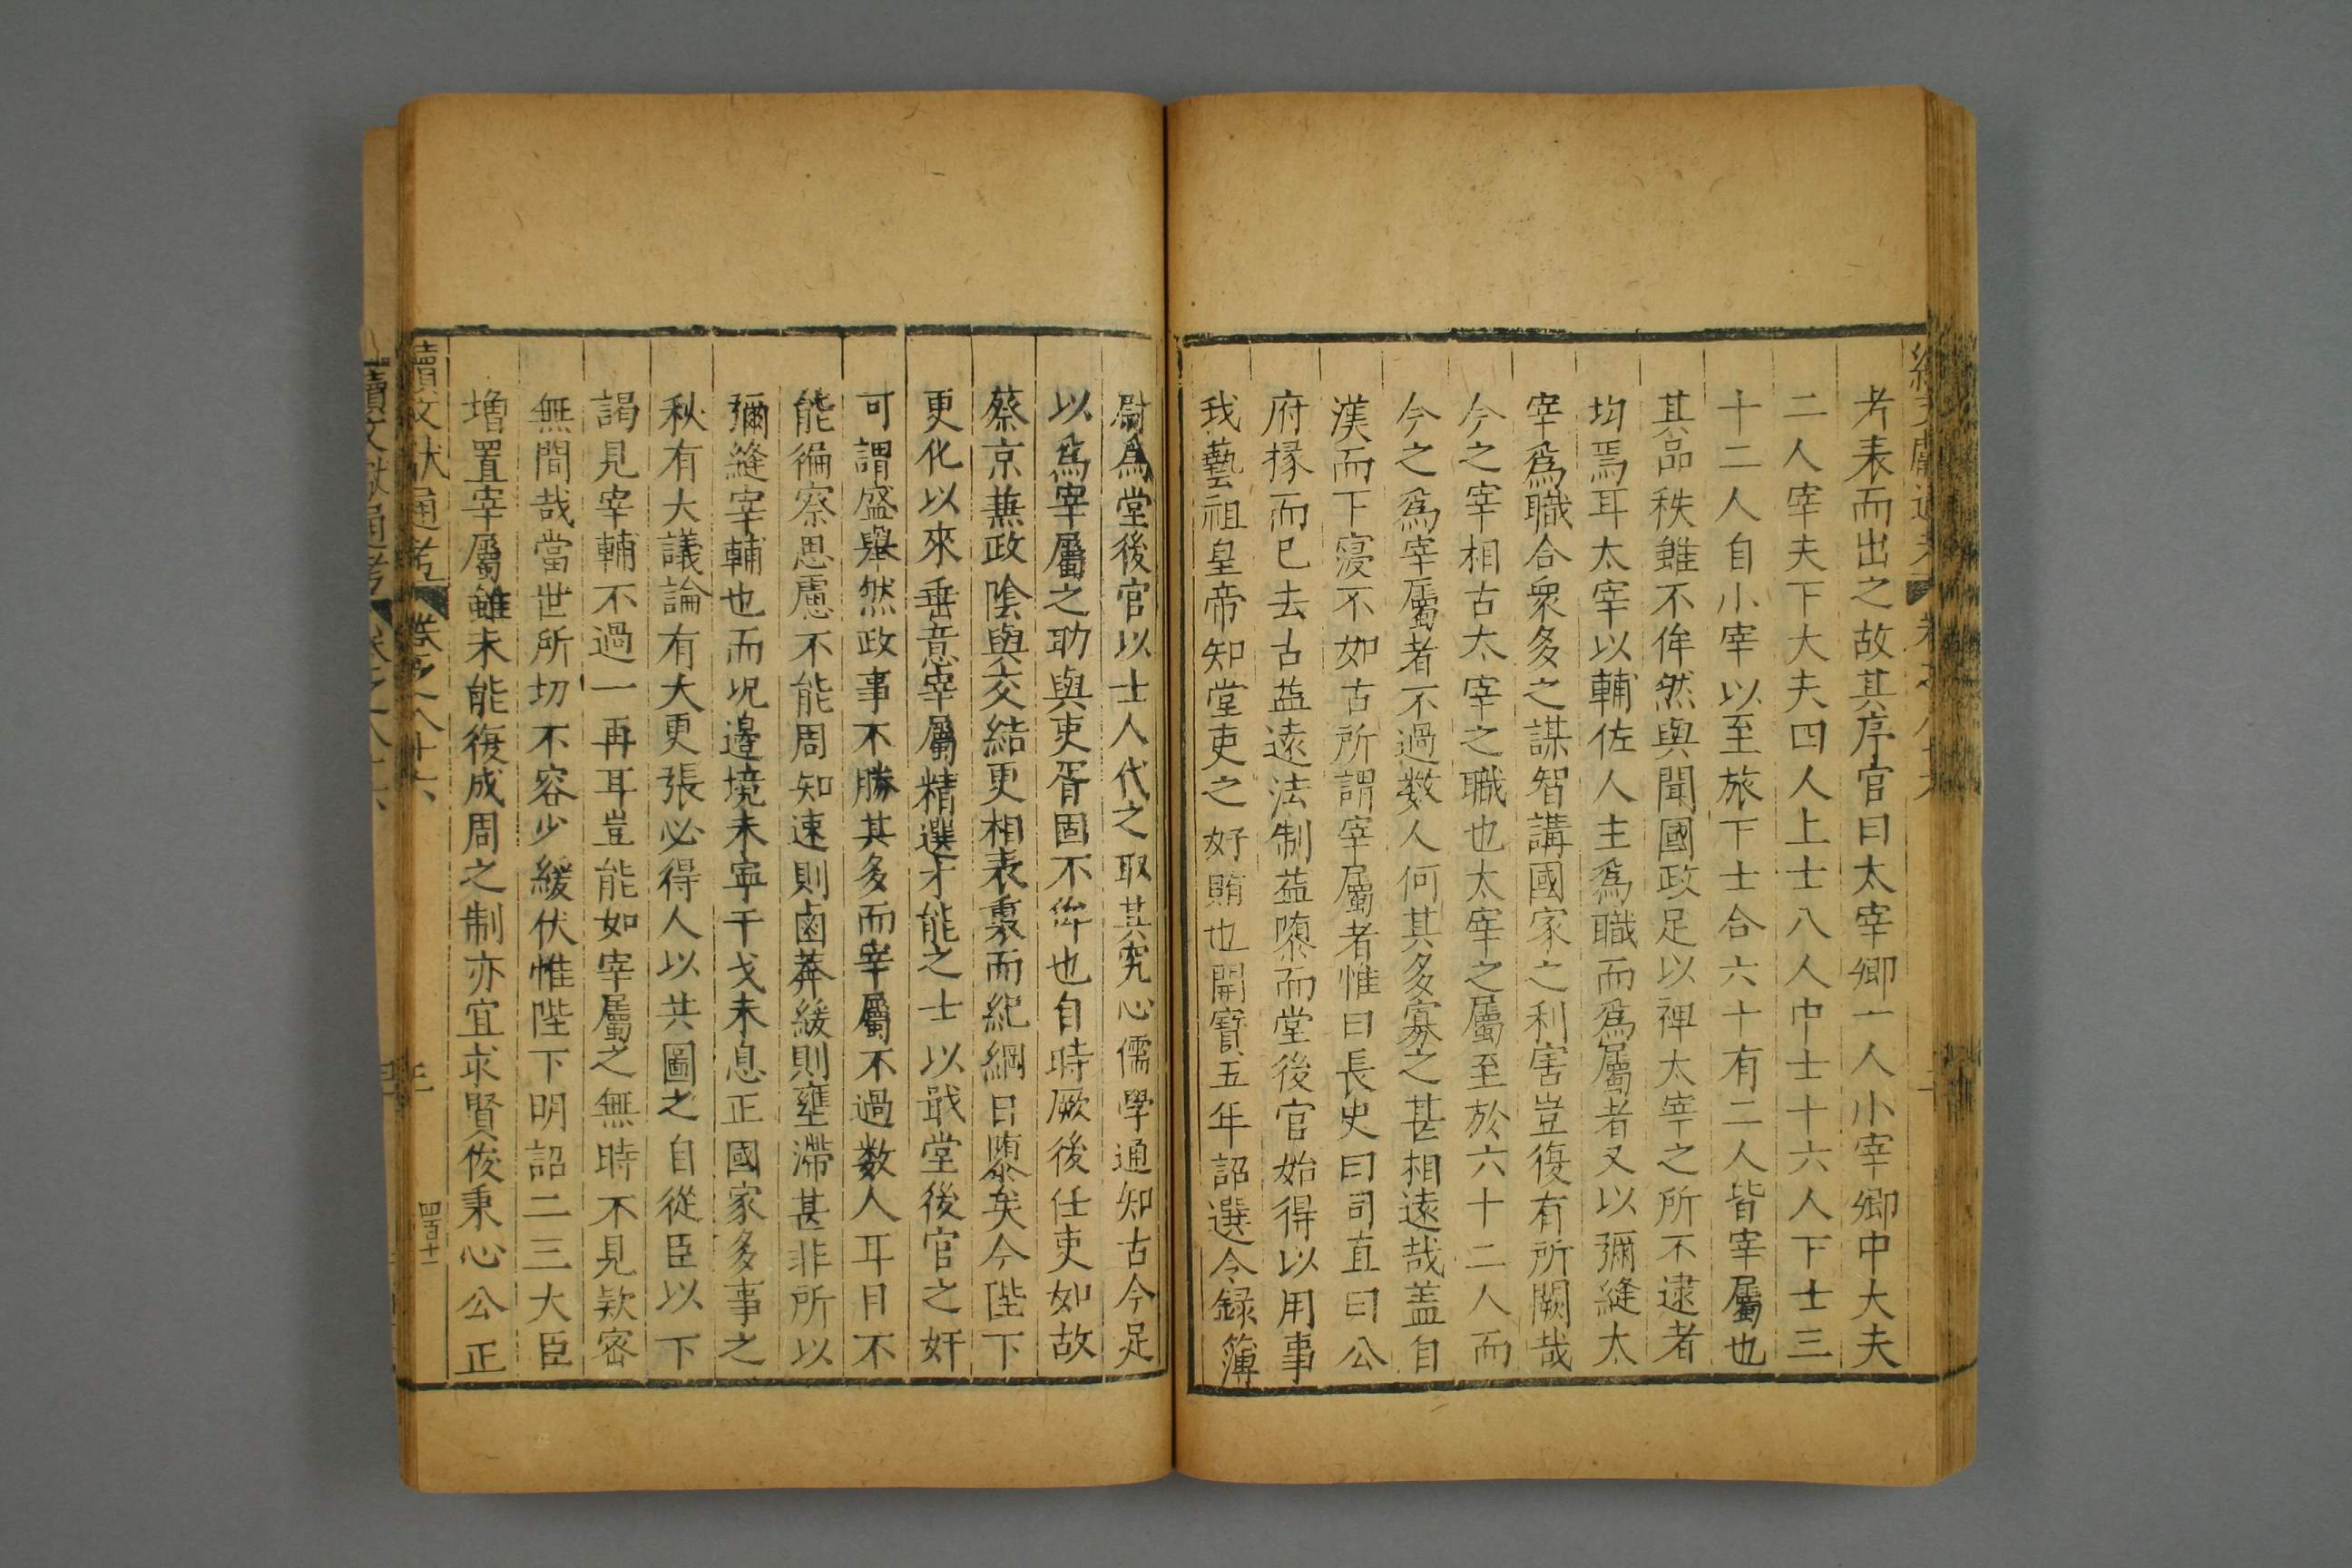 考表而出之故其序官曰太宰卿一人小宰卿中大夫
二人宰夫下大夫四人上士八人中士十六人下士三
十二人自小宰以至旅下士合六十有二人皆宰屬也
其品秩雖不侔然與聞國政足以裨太宰之所不逮者
均焉耳太宰以輔佐人主爲職而爲屬者又以彌縫太
宰爲職合衆多之謀智講國家之利害豈復有所闕哉
今之宰相古太宰之職也太宰之屬至於六十二人而
今之爲宰屬者不過数人何其多寡之甚相遠哉盖自
漢而下寖不如古所謂宰屬者惟曰長史曰司直曰公
府掾而已去古益遠法制益隳而堂後官始得以用事
我藝祖皇帝知堂吏之好賄也開寶五年詔選令録簿
尉爲堂後官以士人代之取其究心儒學通知古今足
以爲宰屬之助與吏胥固不侔也自時厥後任吏如故
蔡京蕪政隂與交結更相表裏而紀綱日隳矣今陛下
更化以來垂意宰屬精選才能之士以戢堂後官之奸
可謂盛舉然政事不勝其多而宰屬不過数人耳目不
能徧察思慮不能周知速則鹵莽緩則壅滯甚非所以
彌縫宰輔也而况邉境未寧干戈未息正國家多事之
秋有大議論有大更張必得人以共圖之自從臣以下
謁見宰輔不過一再耳豈能如宰屬之無時不見欵密
無間哉當世所切不容少緩伏惟陛下明詔二三大臣
増置宰屬雖未能復成周之制亦宜求賢俊秉心公正
續文獻通考 卷之八十六
三
四百十一
續文獻通考 卷之八十六